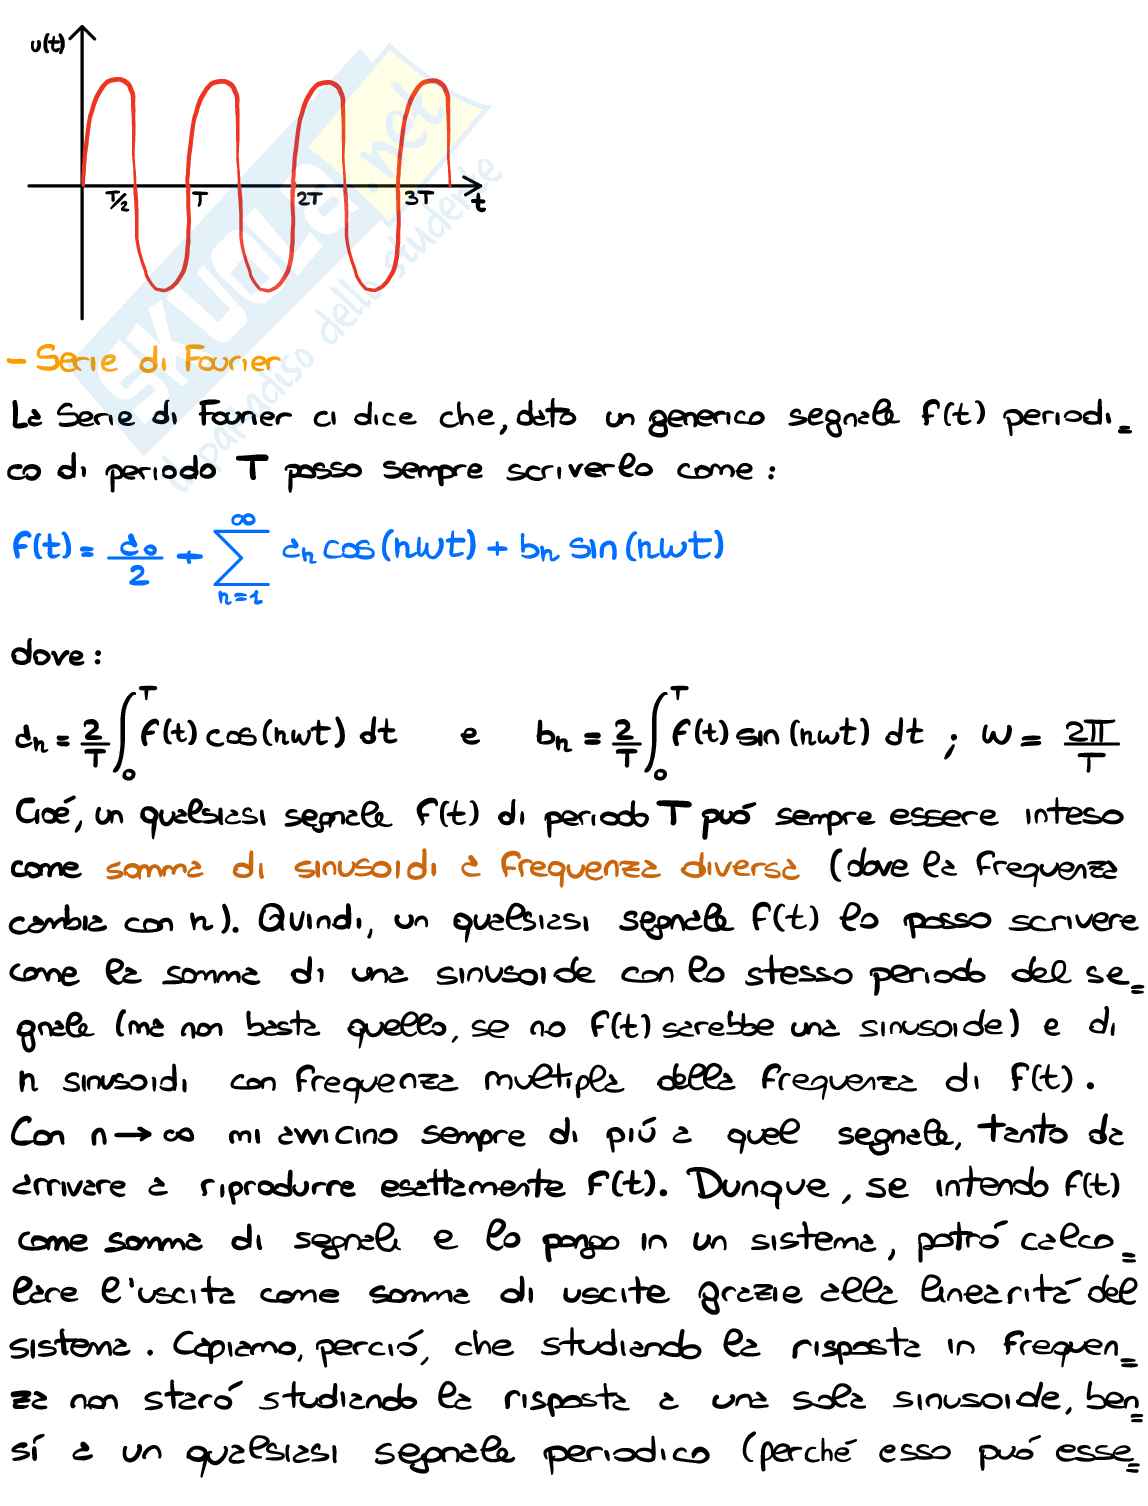 u(t)
T/2 T 2T 3T t
SKUOLA.net
il paradiso dello studente
- Serie di Fourier
La Serie di Fourier ci dice che, dato un generico segnale f(t) periodi_
co di periodo T posso sempre scriverlo come :
f(t) = a₀/2 + ∑_{n=1}^{∞} aₙ cos(nωt) + bₙ sin(nωt)
dove :
aₙ = 2/T ∫₀ᵀ f(t) cos(nωt) dt e bₙ = 2/T ∫₀ᵀ f(t) sin(nωt) dt ; ω = 2π/T
Cioé, un qualsiasi segnale f(t) di periodo T puó sempre essere inteso
come somma di sinusoidi a frequenza diversa (dove la frequenza
cambia con n). Quindi, un qualsiasi segnale f(t) lo posso scrivere
come la somma di una sinusoide con lo stesso periodo del se_
gnale (ma non basta quello, se no f(t) sarebbe una sinusoide) e di
n sinusoidi con frequenza multipla della frequenza di f(t).
Con n→∞ mi avvicino sempre di piú a quel segnale, tanto da
arrivare a riprodurre esattamente f(t). Dunque, se intendo f(t)
come somma di segnali e lo pongo in un sistema, potró calco_
lare l'uscita come somma di uscite grazie alla linearitá del
sistema. Capiamo, perció, che studiando la risposta in frequen_
za non staró studiando la risposta a una sola sinusoide, ben_
sí a un qualsiasi segnale periodico (perché esso puó esse_